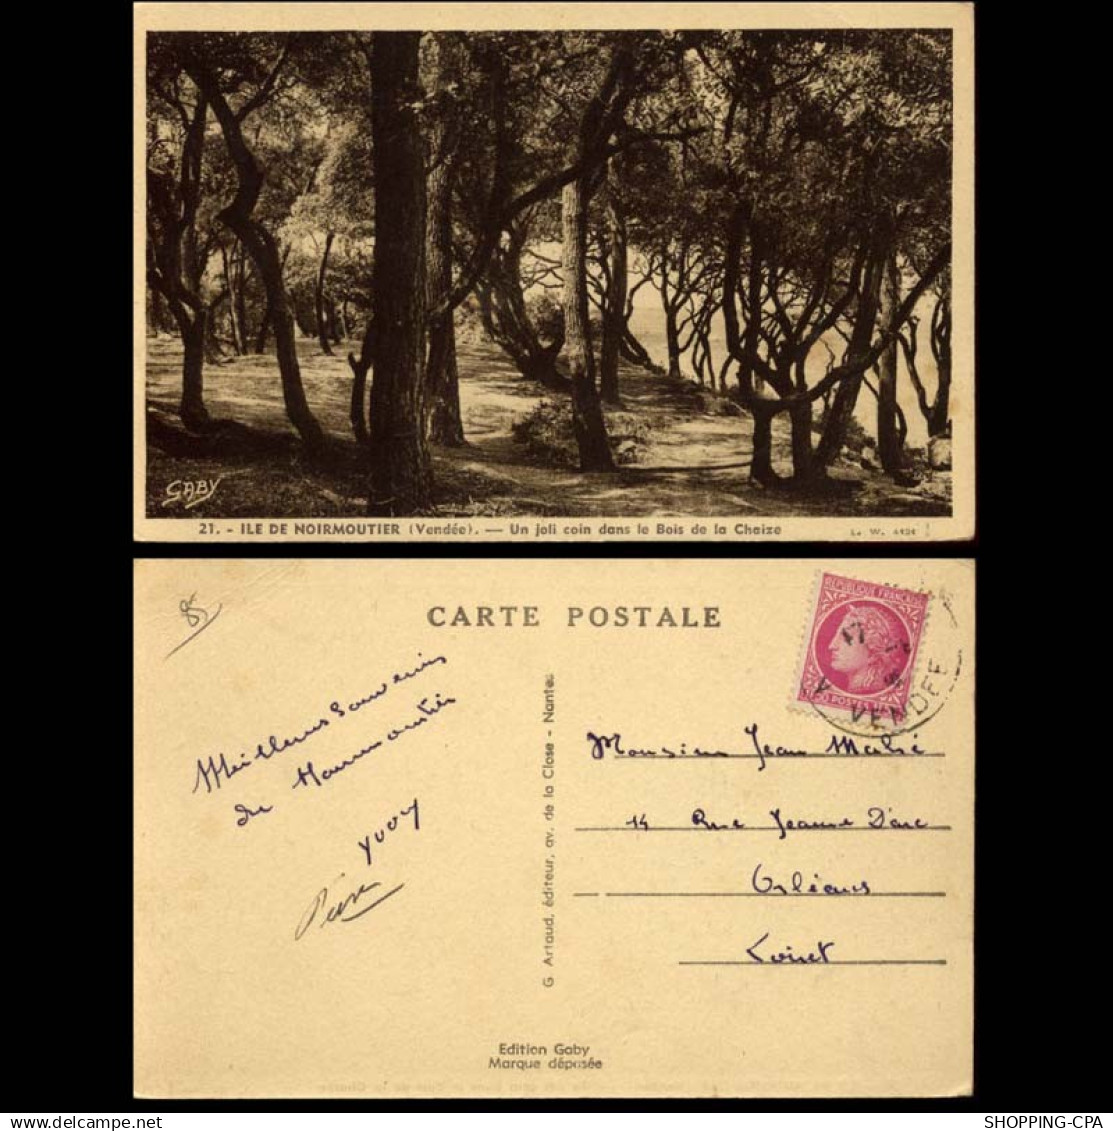 GABY
21. - ILE DE NOIRMOUTIER (Vendée). — Un joli coin dans le Bois de la Chaize
L. W.
85
CARTE POSTALE
REPUBLIQUE FRANÇAISE
POSTES
17
VENDEE
Meilleurs Souvenirs
de Noirmoutier
Yvon
G Artaud, éditeur, av. de la Close - Nantes
Monsieur Jean Mahé
14 Rue Jeanne D'arc
Orléans
Loiret
Edition Gaby
Marque déposée
SHOPPING-CPA